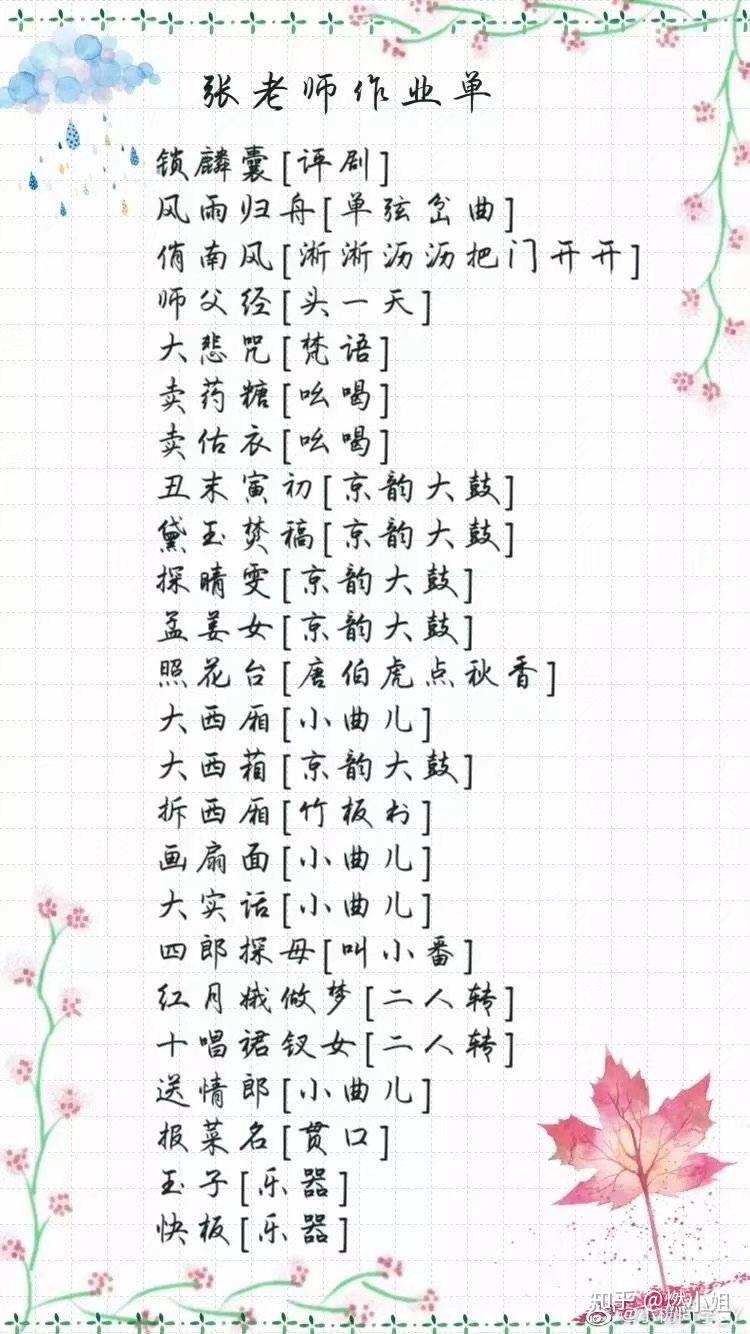 张老师作业单
锁麟囊[评剧]
风雨归舟[单弦岔曲]
俏南风[淅淅沥沥把门开开]
师父经[头一天]
大悲咒[梵语]
卖药糖[吆喝]
卖估衣[吆喝]
丑末寅初[京韵大鼓]
黛玉焚稿[京韵大鼓]
探晴雯[京韵大鼓]
孟姜女[京韵大鼓]
照花台[唐伯虎点秋香]
大西厢[小曲儿]
大西葙[京韵大鼓]
拆西厢[竹板书]
画扇面[小曲儿]
大实话[小曲儿]
四郎探母[叫小番]
红月娥做梦[二人转]
十唱裙钗女[二人转]
送情郎[小曲儿]
报菜名[贯口]
玉子[乐器]
快板[乐器]
知乎 @燃小姐